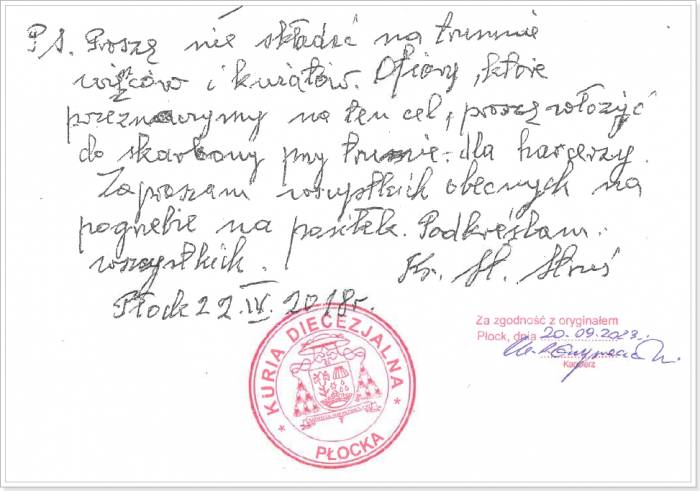 PS. Proszę nie składać na trumnie
wieńców i kwiatów. Ofiary, które
przeznaczymy na ten cel, proszę włożyć
do skarbony przy trumnie - dla harcerzy.
Zapraszam wszystkich obecnych na
pogrzebie na posiłek. Podkreślam:
wszystkich. Ks. St.
Płock 22 IV. 2018 r.
KURIA DIECEZJALNA
* PŁOCKA *
Za zgodność z oryginałem
Płock, dnia 20.09.2023.
Kanclerz